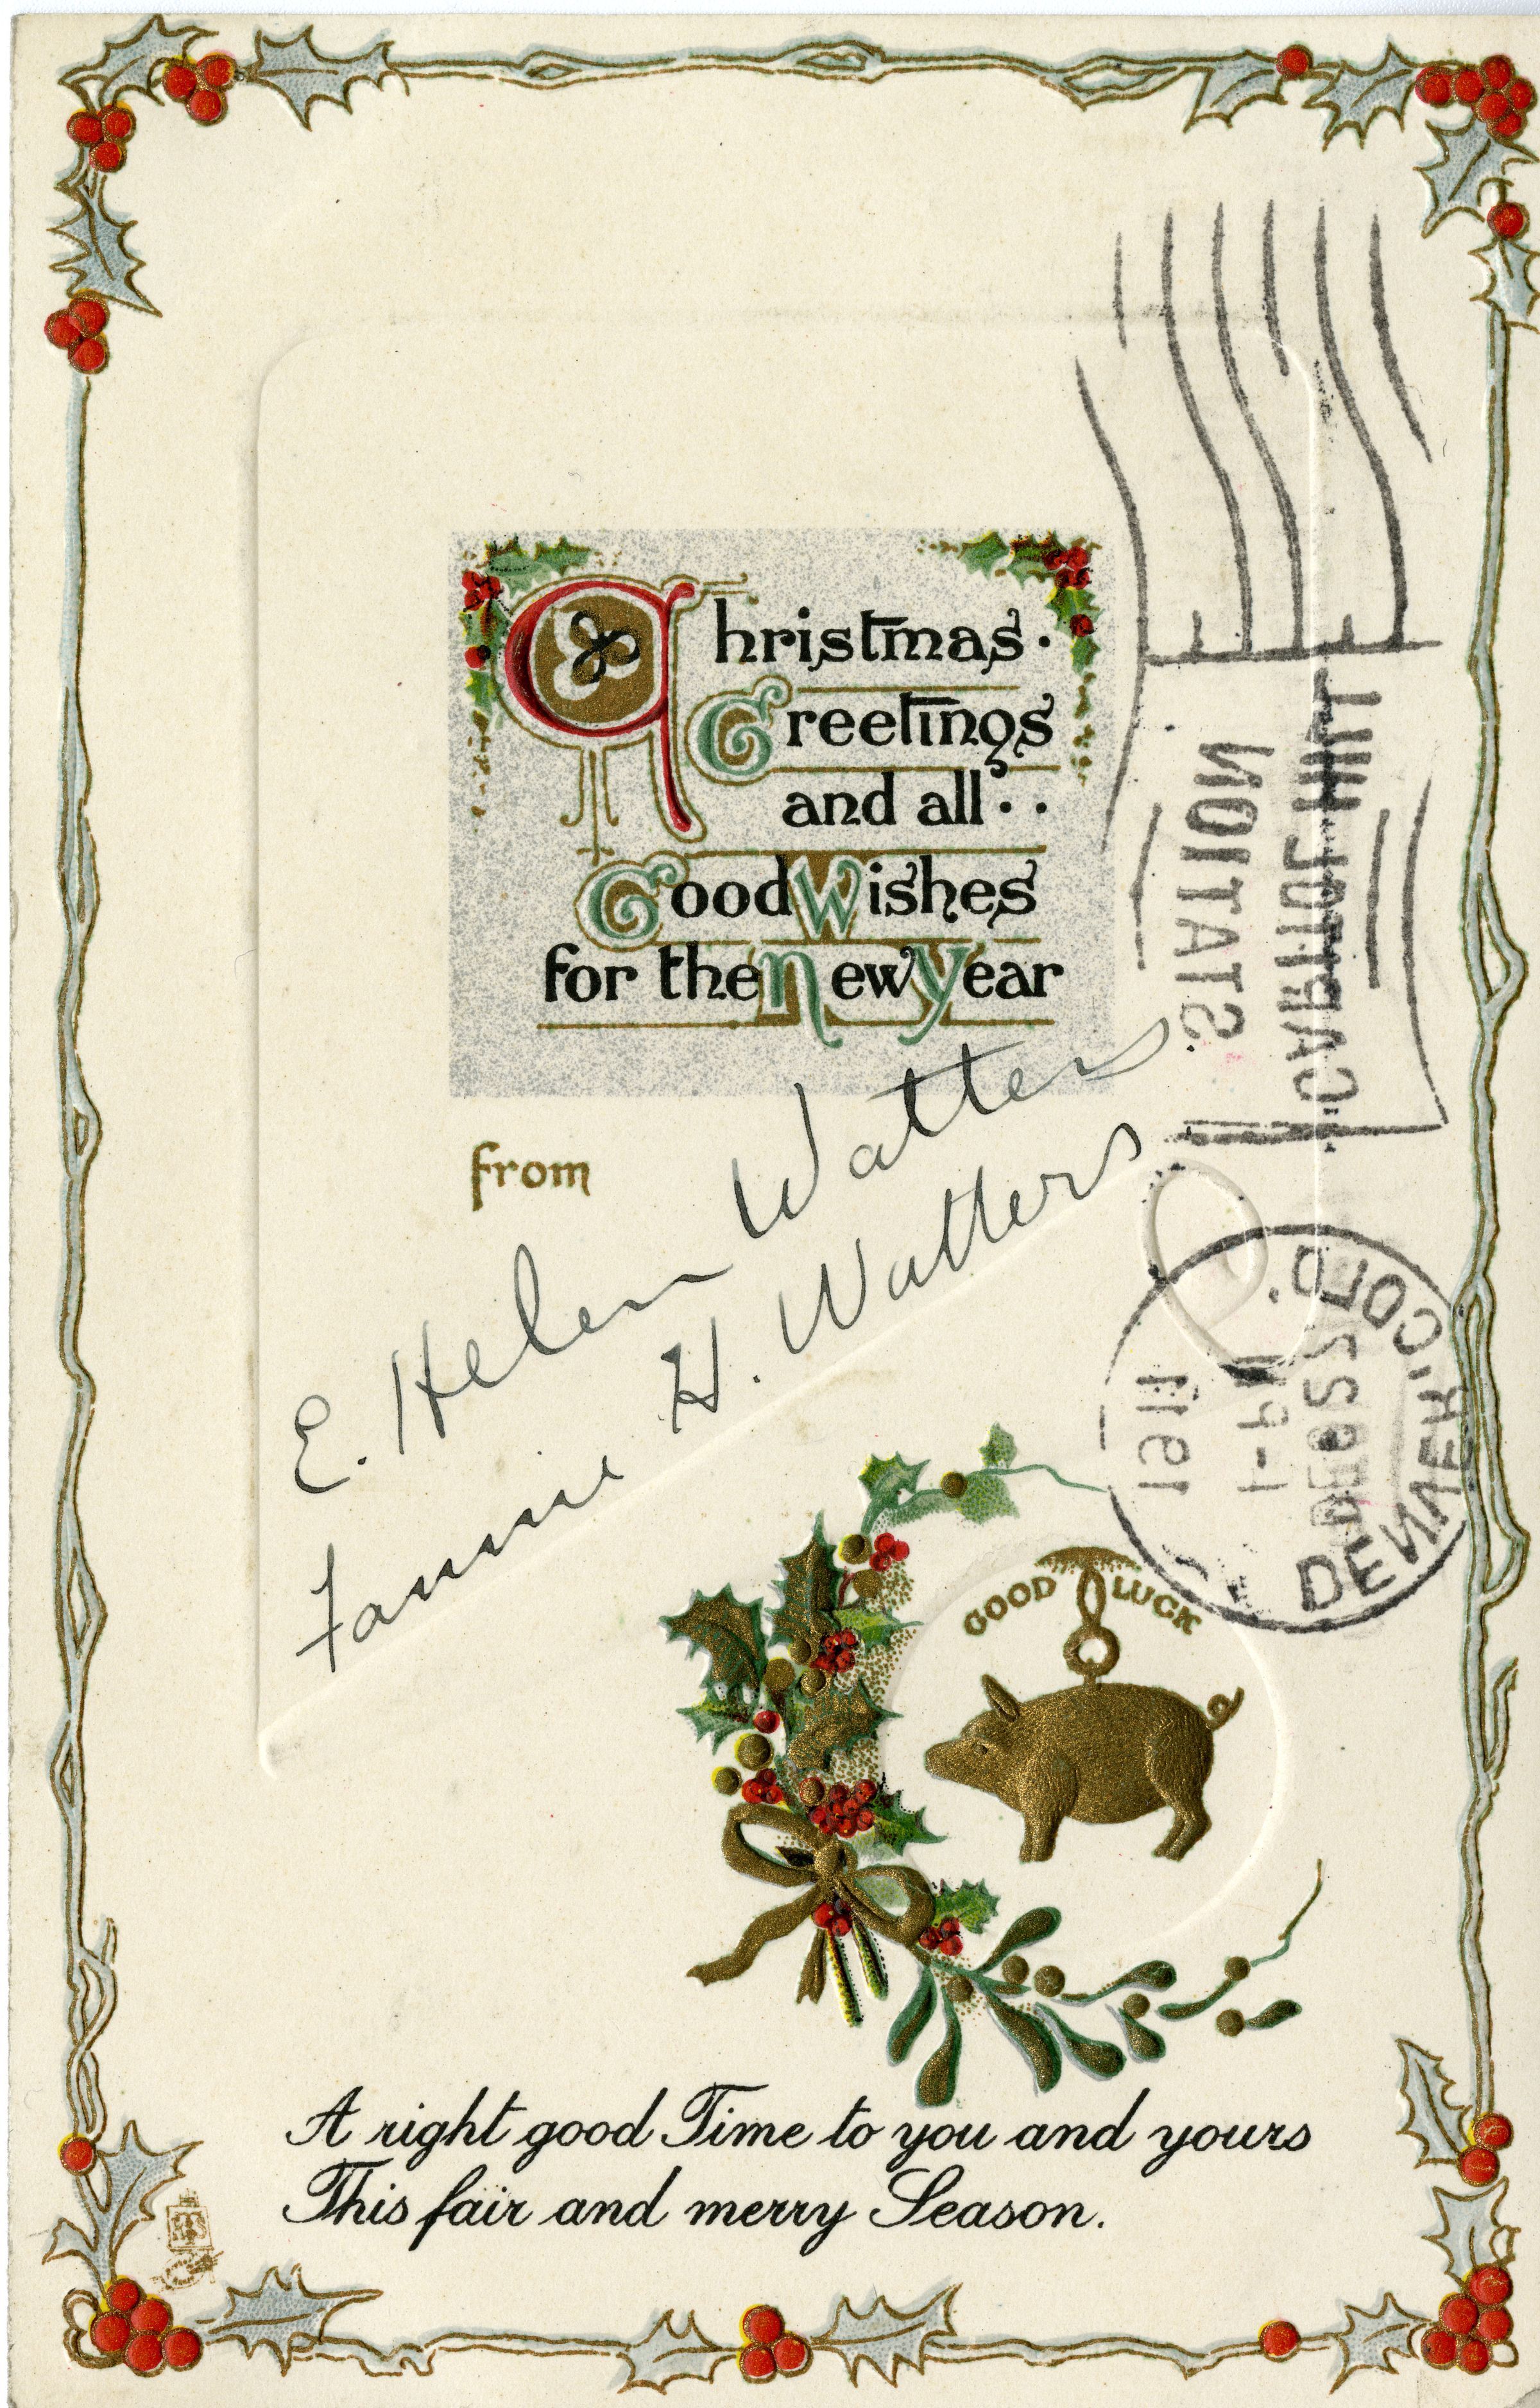 Christmas.
Greetings
and all..
Good Wishes
for the New Year
from
E. Helen Watters
Fannie H. Watters
CAPITOL HILL
STATION
DENVER, COLO.
1911
GOOD LUCK
A right good Time to you and yours
This fair and merry Season.